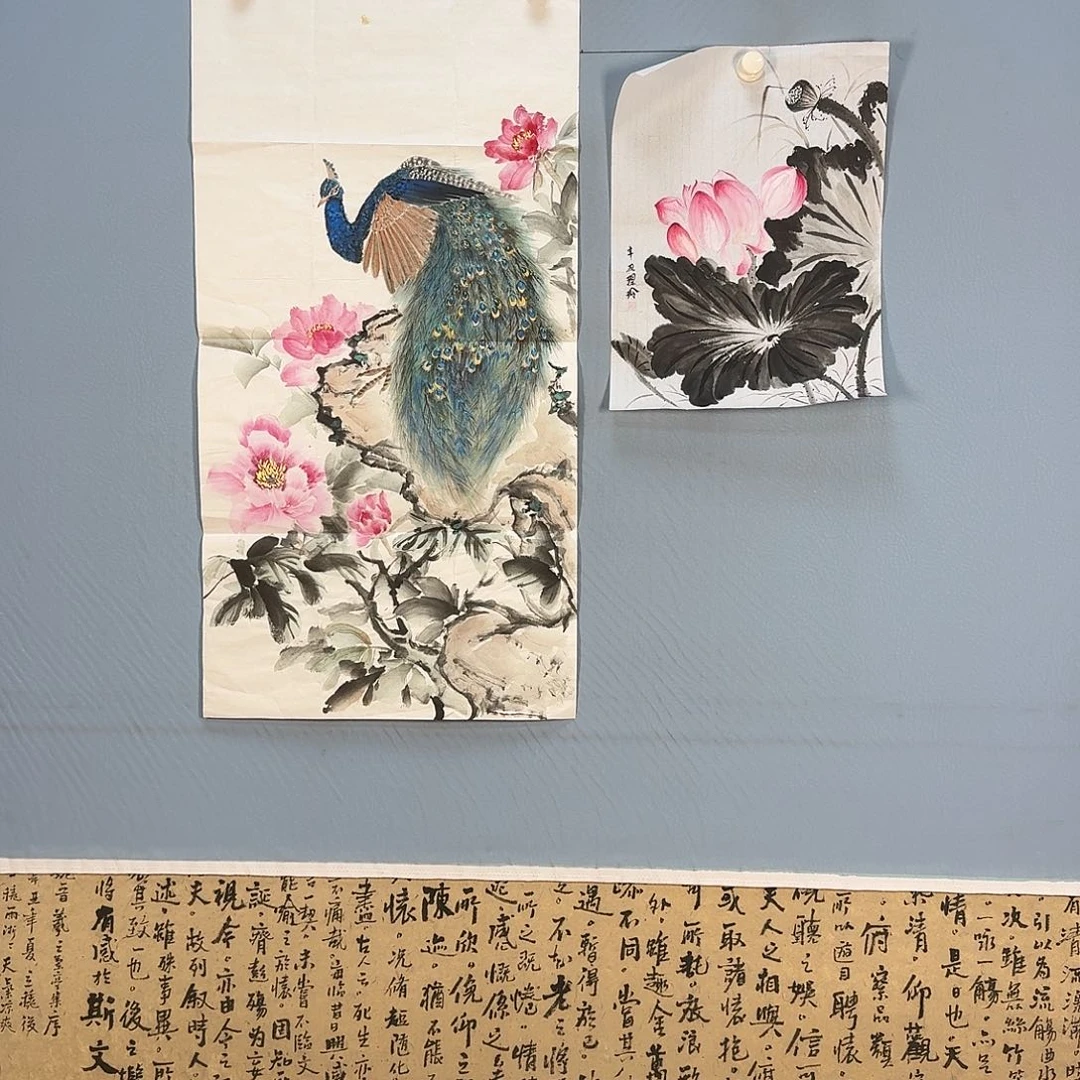 辛丑
有清流激湍。
引以为流觴曲水
次雖無絲竹
。一咏一觴。亦足
情。是日也。天
氣清。仰觀宇
。俯察品類
所以遊目聘懷。
視聽之娛。信可
夫人之相與。俯
或取諸懷抱。
所託。放浪形
外。雖趣舍萬
不同。當其
遇。暫得於己。
之。不知老之將
所之既惓。情
遷。感慨係之
所欣。俛仰之
陳迹。猶不能
懷。况脩短隨化
盡。古人云。死生亦
不痛哉。每臨昔日興感
一契。未嘗不臨文
能喻之於懷。固知
誕。齊彭殤为妄
視今。亦由今之
夫。故列叙時人。
述。雖殊事異。所
其致一也。後之
將有感於斯文
羲之蘭亭集序
辛丑年夏